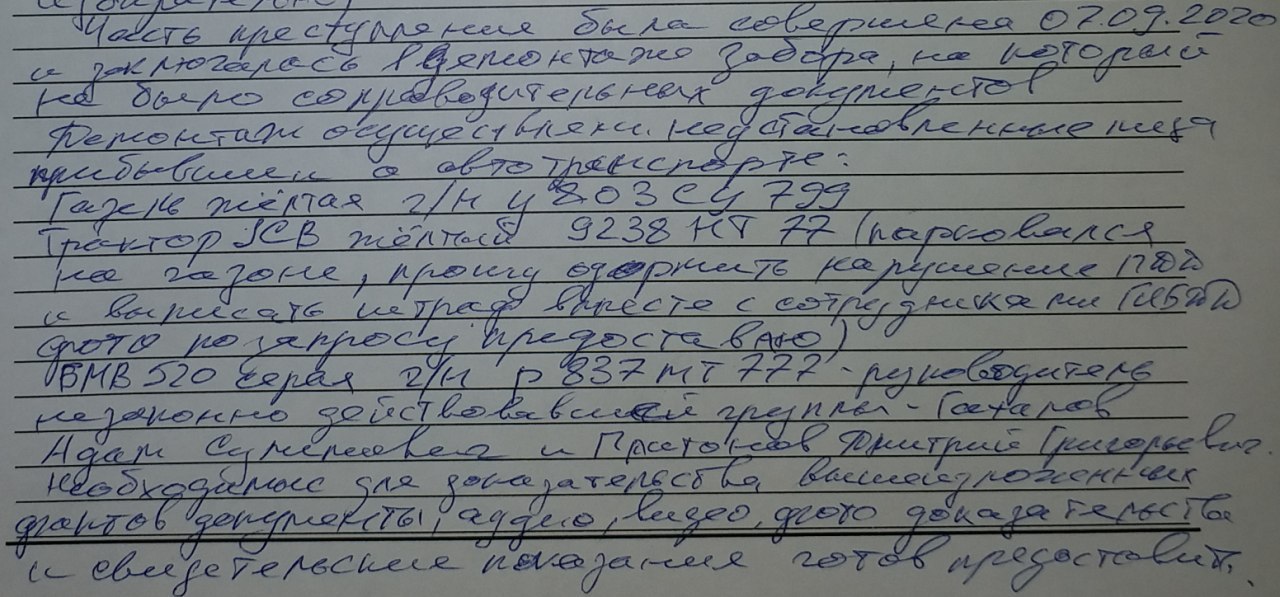 Часть преступления была совершена 07.09.2020
и заключалась в демонтаже забора, на который
не было сопроводительных документов
Демонтаж осуществляли неустановленные лица
прибывшие с автотранспорте:
Газель жёлтая г/н у803су 799
Трактор JCB жёлтый 9238 НТ 77 (парковался
на газоне, прошу одержить нарушение ПДД
и выписать штраф вместе с сотрудниками ГИБДД
фото по запросу предоставлю)
БМВ 520 серая г/н р 837 мт 777 - руководитель
незаконно действовавшей группы -
Адам и Платонов Дмитрий Григорьевич.
Необходимые для доказательства вышеизложенных
фактов документы, аудио, видео, фото доказательства
и свидетельские показания готов предоставить.